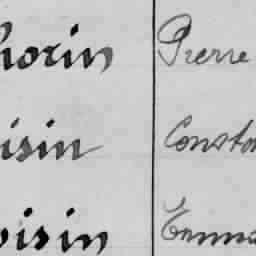 horin Pierre
isin Consta
oisin Emma